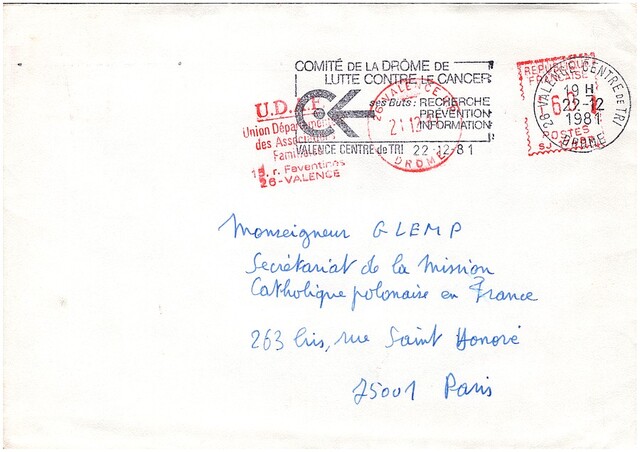 COMITÉ DE LA DRÔME DE
LUTTE CONTRE LE CANCER
ses Buts : RECHERCHE
PRÉVENTION
INFORMATION
VALENCE CENTRE de TRI 22-12-81
U.D.A.F.
Union Départementale
des Associations
Familiales
15, r. Faventines
26-VALENCE
26 VALENCE
21 12
DROME
REPUBLIQUE
FRANCAISE
POSTES
26-VALENCE CENTRE DE TRI
19 H
22-12
1981
DROME
Monseigneur GLEMP
Secrétariat de la Mission
Catholique polonaise en France
263 bis, rue Saint Honoré
75001 Paris